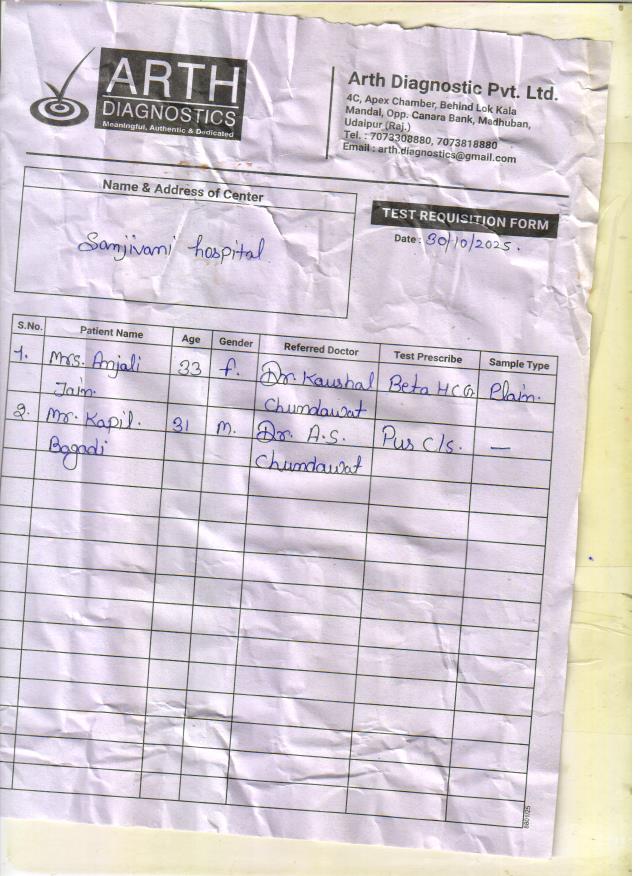 ARTH
DIAGNOSTICS
Meaningful, Authentic & Dedicated
Arth Diagnostic Pvt. Ltd.
4C, Apex Chamber, Behind Lok Kala
Mandal, Opp. Canara Bank, Madhuban,
Udaipur (Raj.)
Tel. : 7073308880, 7073818880
Email : arth.diagnostics@gmail.com
Name & Address of Center
Sanjivani hospital
TEST REQUISITION FORM
Date : 30/10/2025.
S.No. Patient Name Age Gender Referred Doctor Test Prescribe Sample Type
1. Mrs. Anjali 33 f. Dr. Kaushal Beta HCG Plain.
Jain. Chundawat
2. Mr. Kapil. 31 m. Dr. A.S. Pus C/s. —
Bagadi Chundawat
8801/25